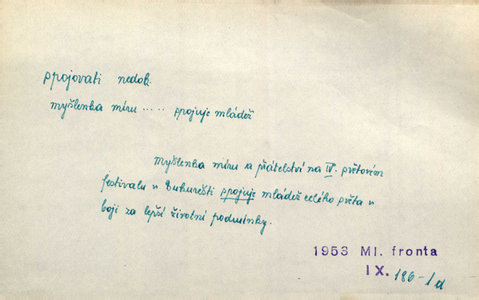 spojovati nedok.
myšlenka míru ..... spojuje mládež
myšlenka míru a přátelství na IV. světovém
festivalu v Bukurešti spojuje mládež celého světa v
boji za lepší životní podmínky.
1953 Ml. fronta
IX. 186-1d